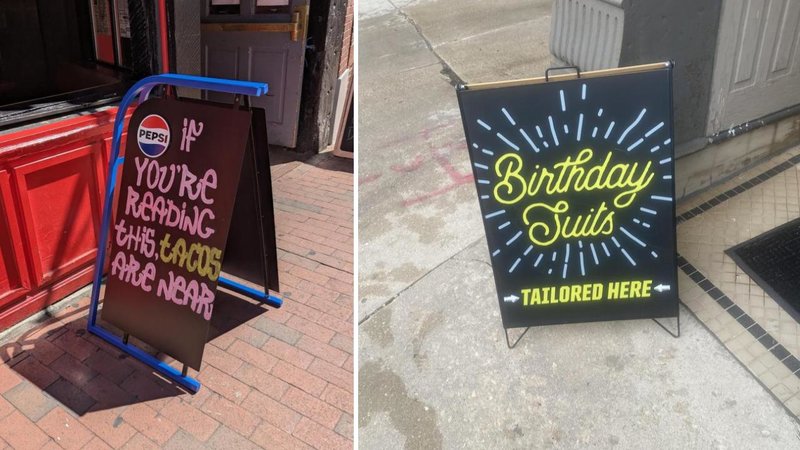 PEPSI
if
YOU'RE
READING
THIS, TACOS
ARE NEAR
Birthday
Suits
TAILORED HERE